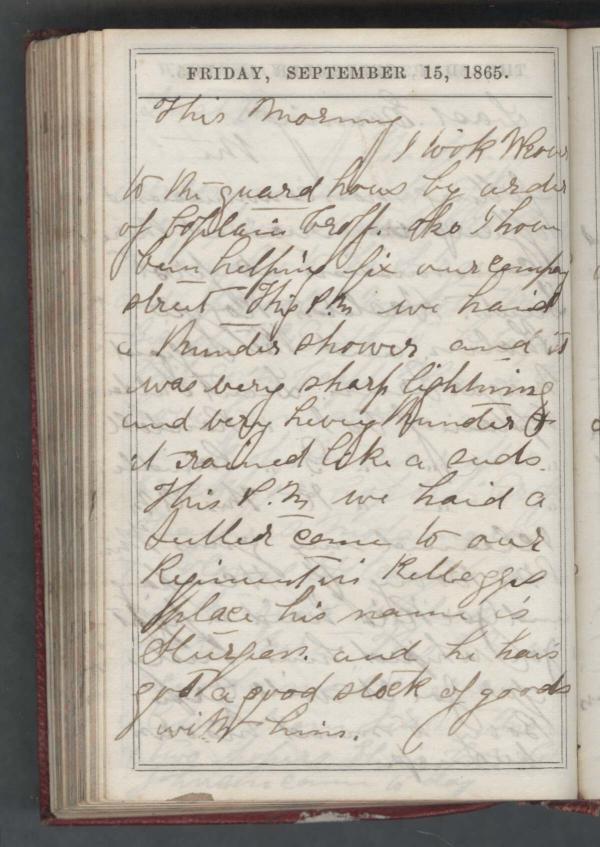 FRIDAY, SEPTEMBER 15, 1865.
This Morning
I took
to the guard hous by order
of Coplain Groff. also I have
ben helping fix our company
street This P.M we haid
a thunder shower and it
was very sharp lightning
and very hevey thunder &
it rained like a suds.
This P.M we haid a
Sutler come to our
Regiment in Kelloggs
place his name is
Sturges. and he hais
got a good stock of goods
with him.